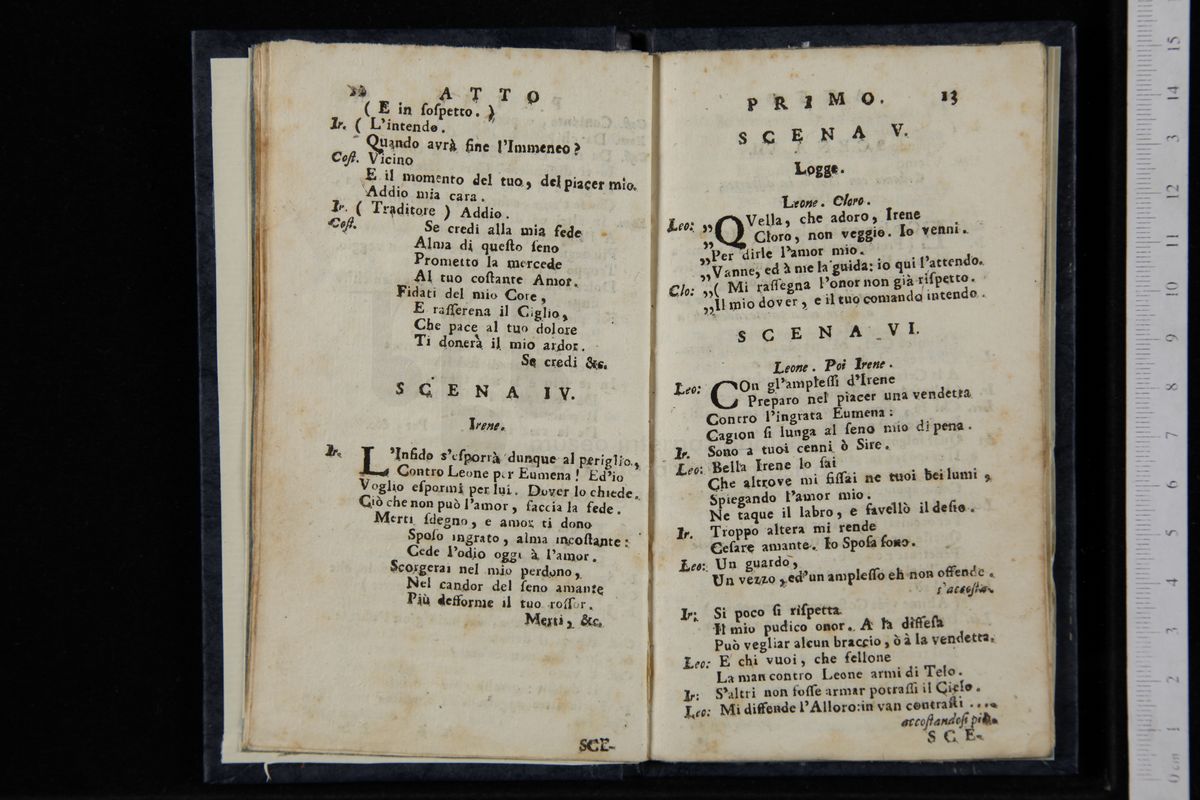 ATTO
( E in ſoſpetto. )
Ir. ( L'intendo.
Quando avrà fine l'Immeneo?
Coſt. Vicino
E il momento del tuo, del piacer mio.
Addio mia cara.
Ir. ( Traditore ) Addio.
Coſt. Se credi alla mia fede
Alma di queſto ſeno
Prometto la mercede
Al tuo coſtante Amor.
Fidati del mio Core,
E raſſerena il Ciglio,
Che pace al tuo dolore
Ti donerà il mio ardor.
Se credi &c.
SCENA IV.
Irene.
Ir. L'Infido s'eſporrà dunque al periglio,
Contro Leone per Eumena! Ed'io
Voglio eſpormi per lui. Dover lo chiede.
Ciò che non può l'amor, faccia la fede.
Merti ſdegno, e amor ti dono
Spoſo ingrato, alma incoſtante:
Cede l'odio oggi à l'amor.
Scorgerai nel mio perdono,
Nel candor del ſeno amante
Più defforme il tuo roſſor.
Merti, &c.
SCE-
PRIMO. 13
SCENA V.
Logge.
Leone. Cloro.
Leo: „QVella, che adoro, Irene
„ Cloro, non veggio. Io venni.
„Per dirle l'amor mio.
„Vanne, ed à me la guida: io qui l'attendo.
Clo: „( Mi raſſegna l'onor non già riſpetto.
„Il mio dover, e il tuo comando intendo.
SCENA VI.
Leone. Poi Irene.
Leo: COn gl'ampleſſi d'Irene
Preparo nel piacer una vendetta
Contro l'ingrata Eumena:
Cagion ſi lunga al ſeno mio di pena.
Ir. Sono a tuoi cenni ò Sire.
Leo: Bella Irene lo ſai
Che altrove mi fiſſai ne tuoi bei lumi,
Spiegando l'amor mio.
Ne taque il labro, e favellò il deſio.
Ir. Troppo altera mi rende
Ceſare amante. Io Spoſa ſono.
Leo: Un guardo,
Un vezzo, ed'un ampleſſo eh non offende.
s'accoſta.
Ir: Si poco ſi riſpetta
Il mio pudico onor. A la diffeſa
Può vegliar alcun braccio, ò à la vendetta.
Leo: E chi vuoi, che fellone
La man contro Leone armi di Telo.
Ir: S'altri non foſſe armar potraſſi il Cielo.
Leo: Mi diffende l'Alloro: in van contraſti ....
accoſtandoſi più.
SCE-
15
14
13
12
11
10
9
8
7
6
5
4
3
2
1
0 cm